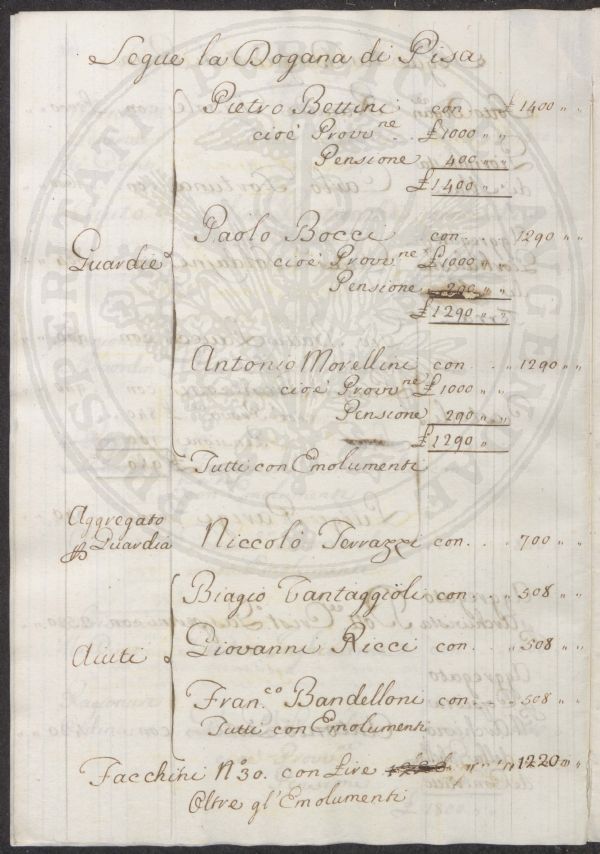 Segue la Dogana di Pisa
Pietro Bettini con £ 1400 „ „
cioè Provi.ne £ 1000 „ „
Pensione 400 „ „
£ 1400 „
Guardie
Paolo Bocci con 1290 „ „
cioè Provi.ne £ 1000 „
Pensione 290 „ „
£ 1290 „
Antonio Morellini con 1290 „ „
cioè Provi.ne £ 1000 „
Pensione 290 „ „
£ 1290 „
Tutti con Emolumenti
Aggregato
p Guardia Niccolò Terrazzi con 700 „ „
Biagio Tantaggioli con 508 „ „
Aiuti Giovanni Ricci con 508 „ „
Fran.co Bandelloni con 508 „ „
Tutti con Emolumenti
Facchini N.o 30. con Lire 1220 „ „
Oltre gl'Emolumenti
PROSPERITATI PUBLICAE AUGENDAE